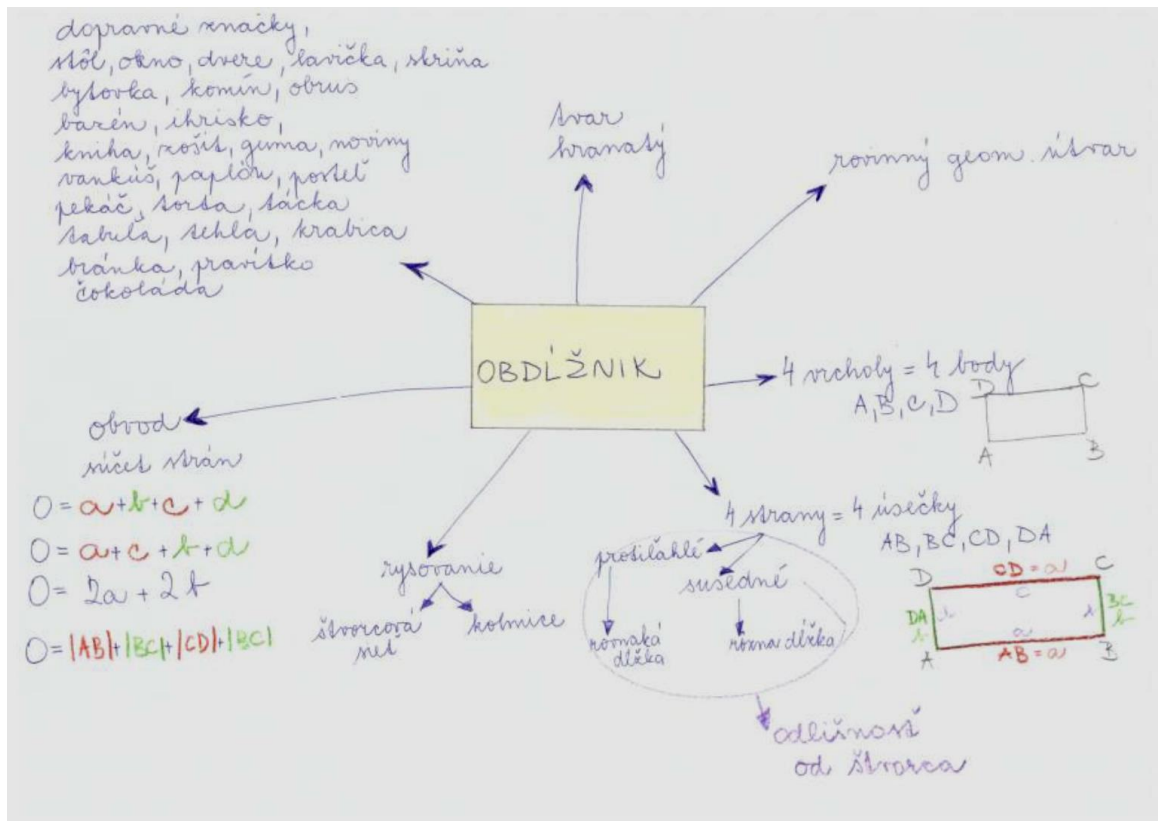 dopravné značky,
stôl, okno, dvere, lavička, skriňa
bytovka, komín, obrus
bazén, ihrisko,
kniha, zošit, guma, noviny
vankúš, paplón, posteľ
pekáč, torta, tácka
tabuľa, tehla, krabica
bránka, pravítko
čokoláda
tvar
hranatý
rovinný geom. útvar
OBDĹŽNIK
4 vrcholy = 4 body
A, B, C, D
D C
A B
obvod
súčet strán
O = a + b + c + d
O = a + c + b + d
O = 2a + 2b
O = |AB| + |BC| + |CD| + |BC|
rysovanie
štvorcová
sieť
kolmice
4 strany = 4 úsečky
AB, BC, CD, DA
protiľahlé
susedné
rovnaká
dĺžka
rôzna dĺžka
D CD = a C
c
DA b b BC
b a b
A AB = a B
odlišnosť
od štvorca